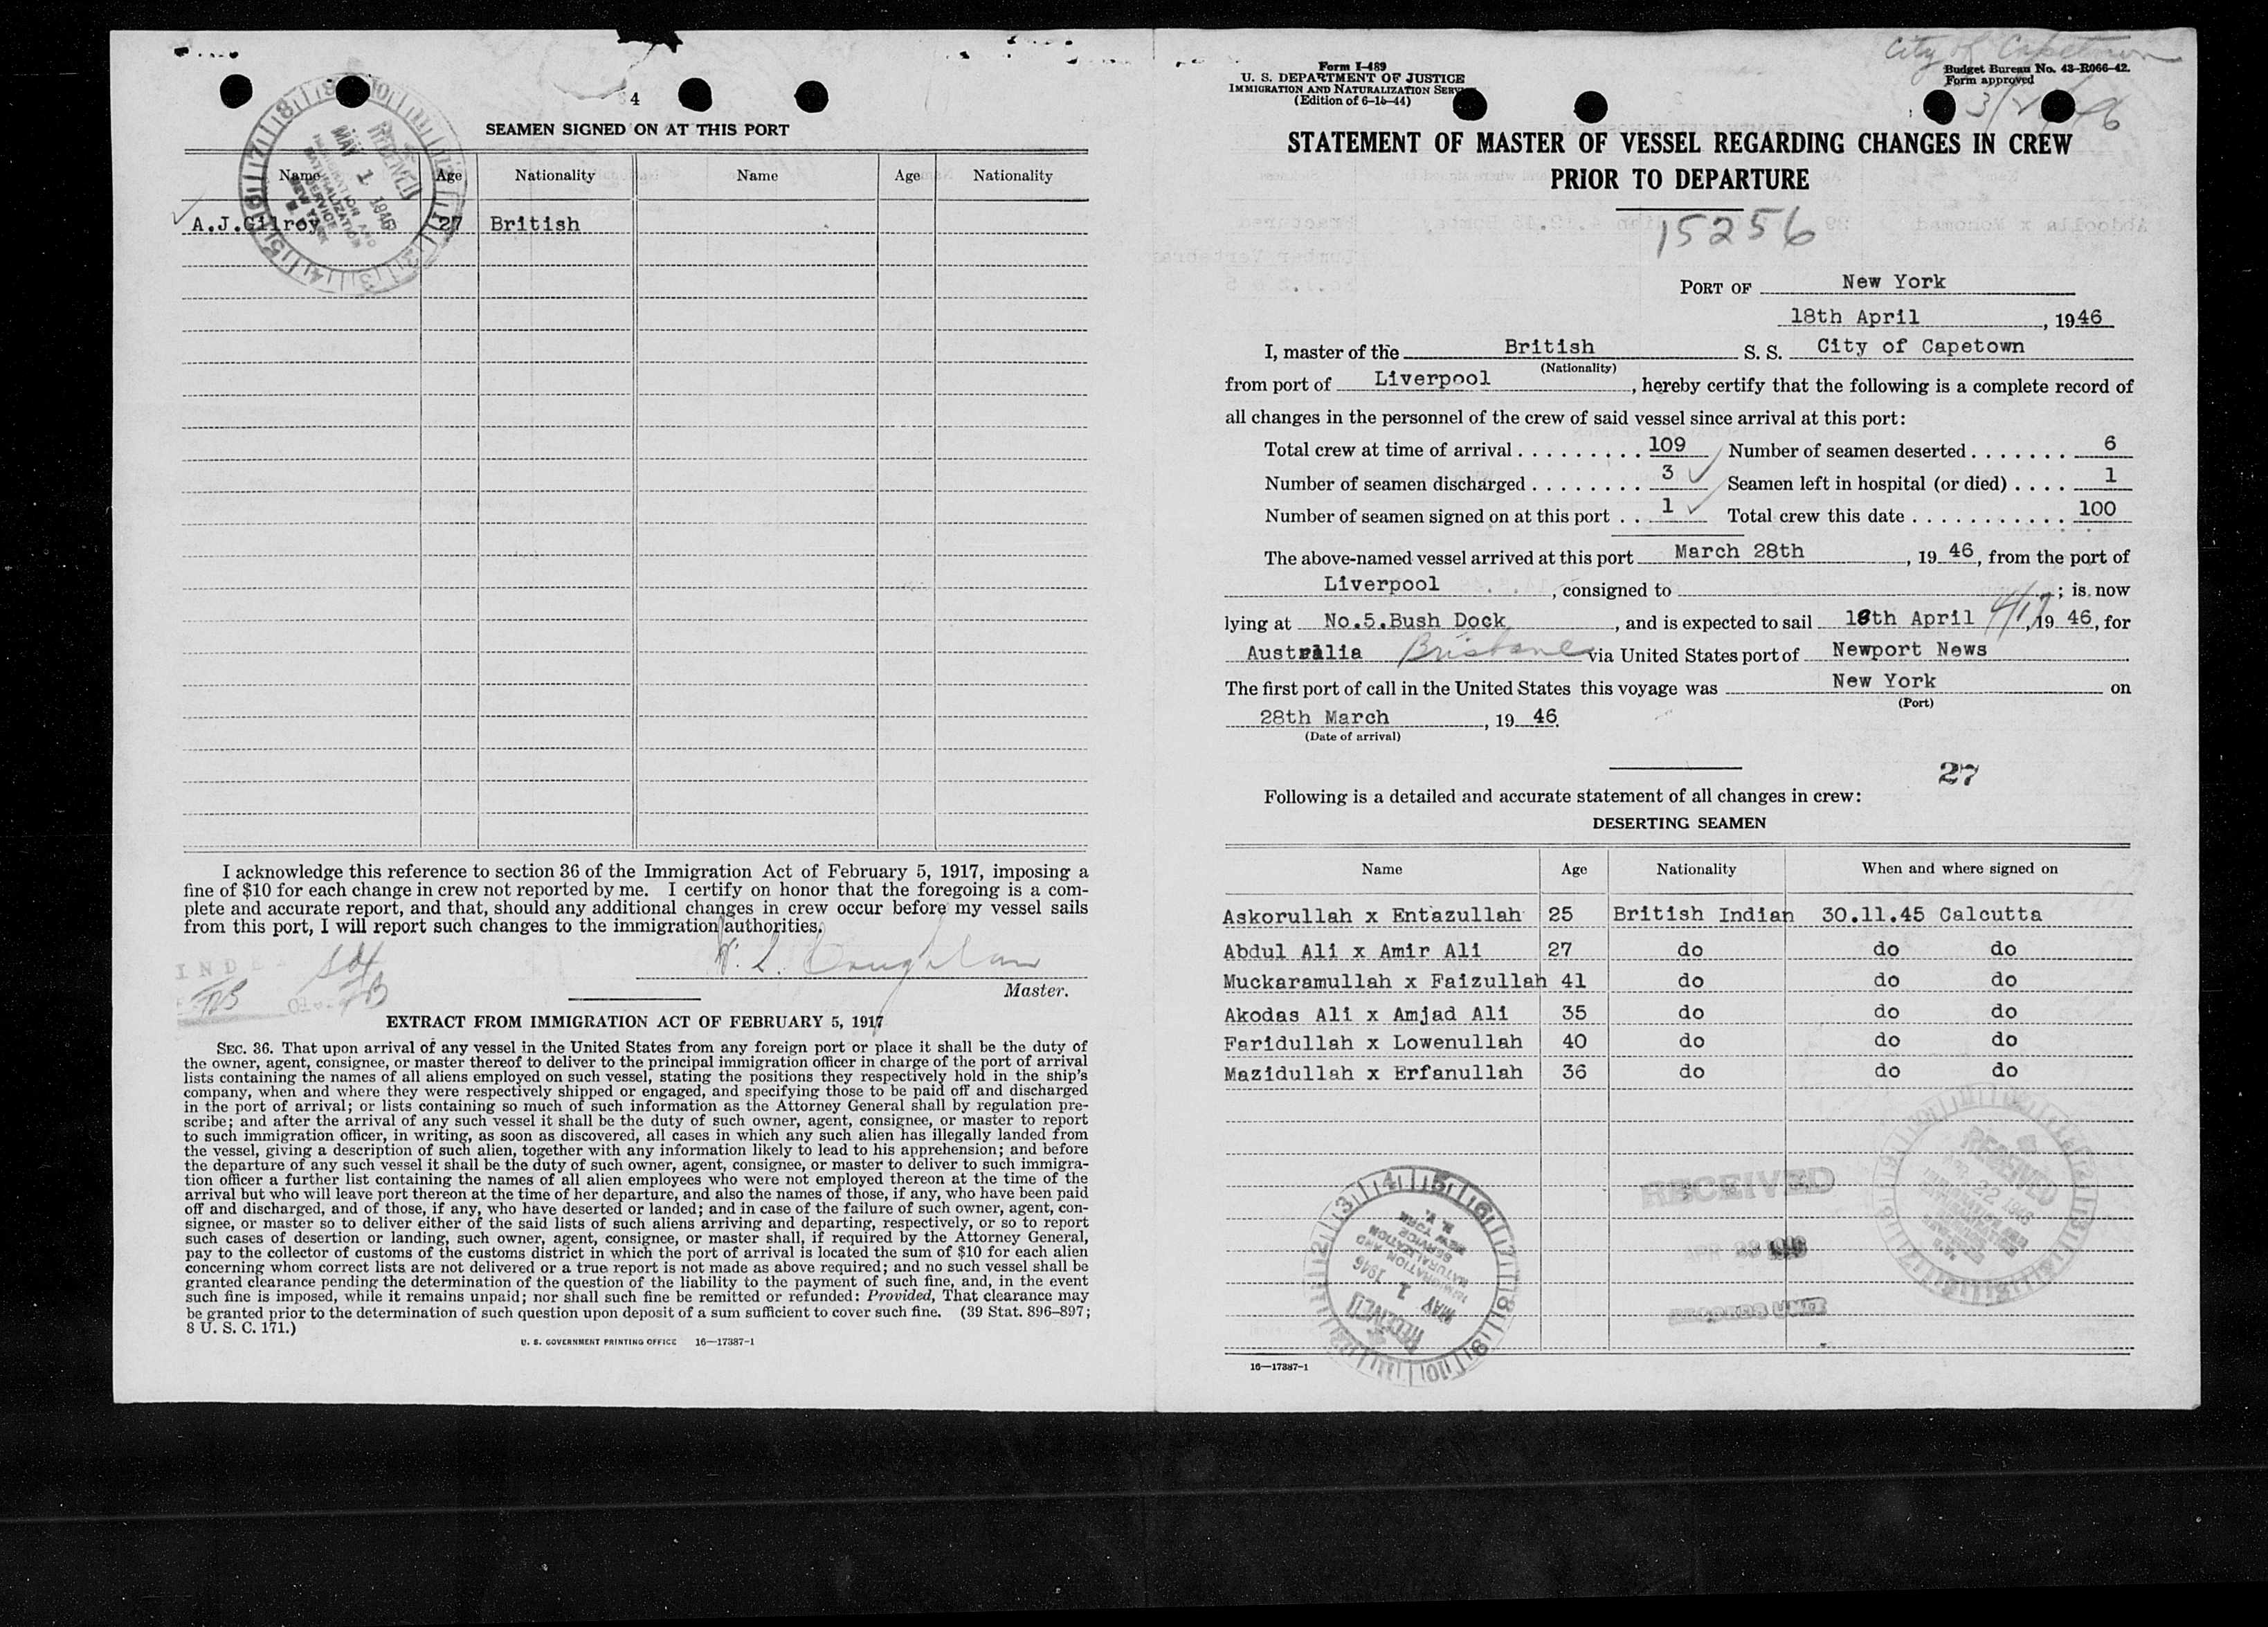 4
SEAMEN SIGNED ON AT THIS PORT
Name Age Nationality Name Age Nationality
A.J.Gilroy 27 British
RECEIVED
MAY 1 1946
IMMIGRATION AND
NATURALIZATION
SERVICE
NEW YORK
I acknowledge this reference to section 36 of the Immigration Act of February 5, 1917, imposing a
fine of $10 for each change in crew not reported by me. I certify on honor that the foregoing is a com-
plete and accurate report, and that, should any additional changes in crew occur before my vessel sails
from this port, I will report such changes to the immigration authorities.
Master.
EXTRACT FROM IMMIGRATION ACT OF FEBRUARY 5, 1917
SEC. 36. That upon arrival of any vessel in the United States from any foreign port or place it shall be the duty of
the owner, agent, consignee, or master thereof to deliver to the principal immigration officer in charge of the port of arrival
lists containing the names of all aliens employed on such vessel, stating the positions they respectively hold in the ship's
company, when and where they were respectively shipped or engaged, and specifying those to be paid off and discharged
in the port of arrival; or lists containing so much of such information as the Attorney General shall by regulation pre-
scribe; and after the arrival of any such vessel it shall be the duty of such owner, agent, consignee, or master to report
to such immigration officer, in writing, as soon as discovered, all cases in which any such alien has illegally landed from
the vessel, giving a description of such alien, together with any information likely to lead to his apprehension; and before
the departure of any such vessel it shall be the duty of such owner, agent, consignee, or master to deliver to such immigra-
tion officer a further list containing the names of all alien employees who were not employed thereon at the time of the
arrival but who will leave port thereon at the time of her departure, and also the names of those, if any, who have been paid
off and discharged, and of those, if any, who have deserted or landed; and in case of the failure of such owner, agent, con-
signee, or master so to deliver either of the said lists of such aliens arriving and departing, respectively, or so to report
such cases of desertion or landing, such owner, agent, consignee, or master shall, if required by the Attorney General,
pay to the collector of customs of the customs district in which the port of arrival is located the sum of $10 for each alien
concerning whom correct lists are not delivered or a true report is not made as above required; and no such vessel shall be
granted clearance pending the determination of the question of the liability to the payment of such fine, and, in the event
such fine is imposed, while it remains unpaid; nor shall such fine be remitted or refunded: Provided, That clearance may
be granted prior to the determination of such question upon deposit of a sum sufficient to cover such fine. (39 Stat. 896–897;
8 U. S. C. 171.)
U. S. GOVERNMENT PRINTING OFFICE 16—17387-1
City of Capetown
Form I-489
U. S. DEPARTMENT OF JUSTICE
IMMIGRATION AND NATURALIZATION
(Edition of 6-15-44)
Budget Bureau No. 43-R066-42.
Form approved
STATEMENT OF MASTER OF VESSEL REGARDING CHANGES IN CREW
PRIOR TO DEPARTURE
15256
PORT OF New York
18th April, 1946
I, master of the British S. S. City of Capetown
(Nationality)
from port of Liverpool, hereby certify that the following is a complete record of
all changes in the personnel of the crew of said vessel since arrival at this port:
Total crew at time of arrival . . . . . . . . . 109 Number of seamen deserted . . . . . . . 6
Number of seamen discharged . . . . . . . . 3 Seamen left in hospital (or died) . . . . 1
Number of seamen signed on at this port . . 1 Total crew this date . . . . . . . . . . . . 100
The above-named vessel arrived at this port March 28th, 19 46, from the port of
Liverpool, consigned to ; is now
lying at No.5.Bush Dock, and is expected to sail 18th April 4/17, 19 46, for
Australia Brisbane via United States port of Newport News
The first port of call in the United States this voyage was New York on
(Port)
28th March, 19 46.
(Date of arrival)
27
Following is a detailed and accurate statement of all changes in crew:
DESERTING SEAMEN
Name Age Nationality When and where signed on
Askorullah x Entazullah 25 British Indian 30.11.45 Calcutta
Abdul Ali x Amir Ali 27 do do do
Muckaramullah x Faizullah 41 do do do
Akodas Ali x Amjad Ali 35 do do do
Faridullah x Lowenullah 40 do do do
Mazidullah x Erfanullah 36 do do do
RECEIVED
RECORDS UNIT
RECEIVED
MAY 1 1946
IMMIGRATION AND
NATURALIZATION
SERVICE
NEW YORK
N. Y.
RECEIVED
16—17387-1